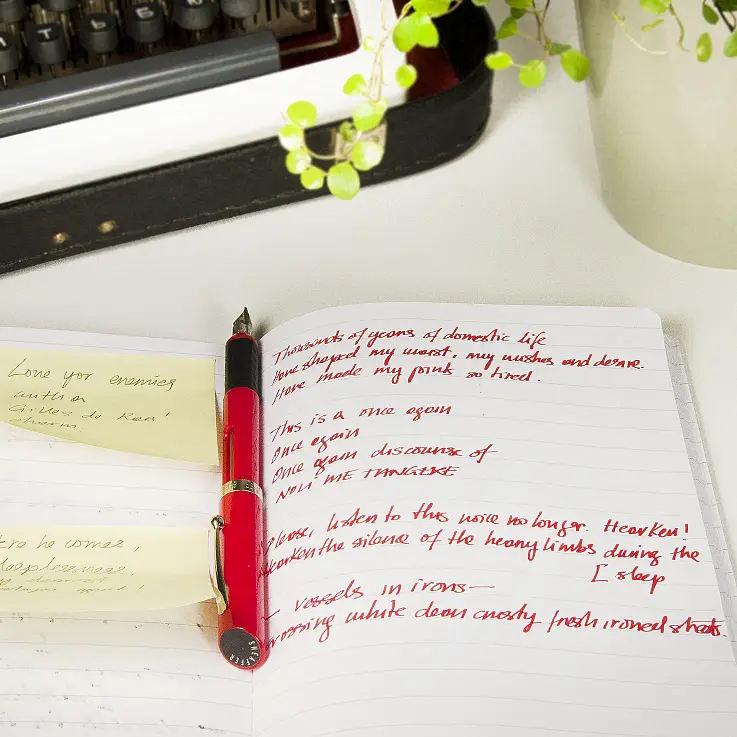 Love yor enemies
with a
Gilles de Rea'
charm.
he comes,
sleeplessness,
Thousands of years of domestic life
Have shaped my worst, my wishes and desire.
Have made my point so tired.
This is a once again
Once again
Once again discourse of
NOLI ME TANGERE
Please, listen to this voice no longer. Hearken!
Hearken the silence of the heavy limbs during the
[ sleep
— vessels in irons —
crossing white clean crusty fresh ironed sheets.
SHEAFFER